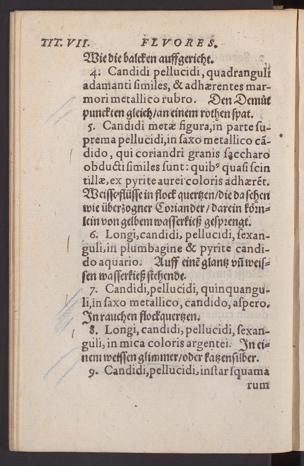 TIT. VII. FLVORES.
Wie die balcken auffgericht.
4. Candidi pellucidi, quadranguli
adamanti similes, & adhærentes mar-
mori metallico rubro. Den Demůt
puncktengleich/an einem rothen spat.
5. Candidi metæ figura, in parte su-
prema pellucidi, in saxo metallico cã-
dido, qui coriandri granis saccharo
obducti similes sunt: quibꝰ quasi scin
tillæ, ex pyrite aurei coloris adhærẽt.
Weisse flüsse in flock quertzen/die da sehen
wie überzogner Coriander/darein körn-
lein von gelbem wasserkieß gesprengt.
6. Longi, candidi, pellucidi, sexan-
guli, in plumbagine & pyrite candi-
do aquario. Auff einẽ glantz vñ weis-
sen wasserkieß stehende.
7. Candidi, pellucidi, quinquangu-
li, in saxo metallico, candido, aspero.
In rauchen flockquertzen.
8. Longi, candidi, pellucidi, sexan-
guli, in mica coloris argentei. In ei-
nem weissen glimmer/oder katzensilber.
9. Candidi, pellucidi, instar squama
rum